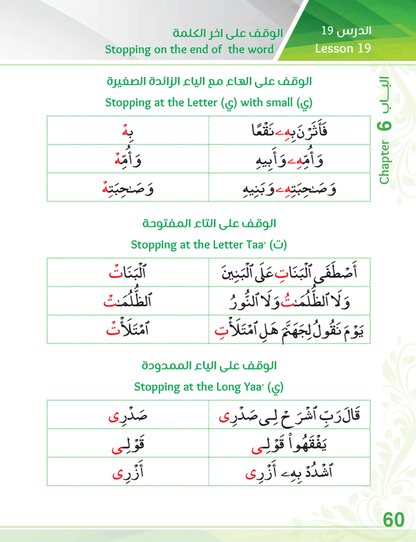 الدرس 19
Lesson 19
الوقف على اخر الكلمة
Stopping on the end of the word
البـــاب 6
Chapter 6
الوقف على الهاء مع الياء الزائدة الصغيرة
Stopping at the Letter (ي) with small (ي)
فَأَثَرْنَ بِهِۦ نَقْعًا بِهْ
وَأُمِّهِۦ وَأَبِيهِ وَأُمِّهْ
وَصَـٰحِبَتِهِۦ وَبَنِيهِ وَصَـٰحِبَتِهْ
الوقف على التاء المفتوحة
Stopping at the Letter Taa' (ت)
أَصْطَفَى ٱلْبَنَاتِ عَلَى ٱلْبَنِينَ ٱلْبَنَاتْ
وَلَا ٱلظُّلُمَـٰتُ وَلَا ٱلنُّورُ ٱلظُّلُمَـٰتْ
يَوْمَ نَقُولُ لِجَهَنَّمَ هَلِ ٱمْتَلَأْتِ ٱمْتَلَأْتْ
الوقف على الياء الممدودة
Stopping at the Long Yaa' (ي)
قَالَ رَبِّ ٱشْرَحْ لِـى صَدْرِى صَدْرِى
يَفْقَهُوا۟ قَوْلِـى قَوْلِـى
ٱشْدُدْ بِهِۦٓ أَزْرِى أَزْرِى
60